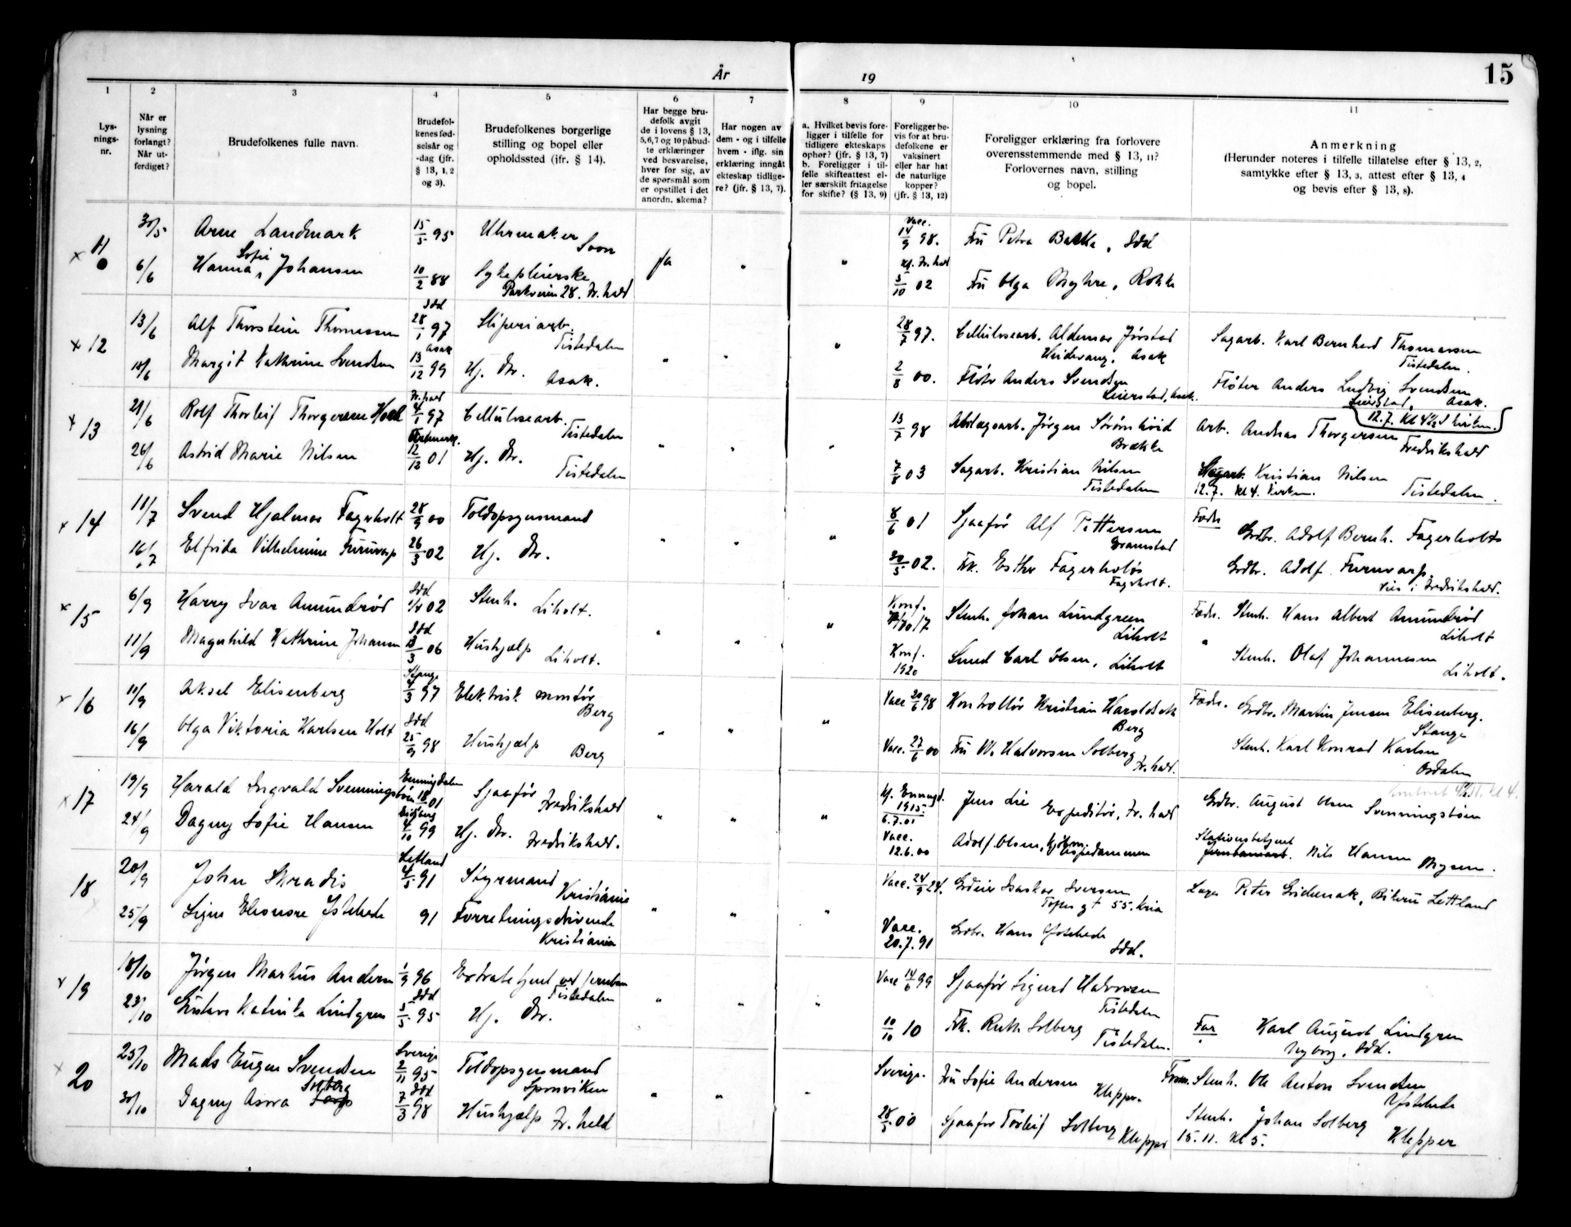 År 19 15
1 2 3 4 5 6 7 8 9 10 11
Lys-
nings-
nr.
Når er
lysning
forlangt?
Når ut-
ferdiget?
Brudefolkenes fulle navn.
Brudefol-
kenes fød-
selsår og
-dag (jfr.
§ 13, 1, 2
og 3).
Brudefolkenes borgerlige
stilling og bopel eller
opholdssted (ifr. § 14).
Har begge bru-
defolk avgit
de i lovens § 13,
5,6,7 og 10 påbud-
te erklæringer
ved besvarelse,
hver for sig, av
de spørsmål som
er opstillet i det
anordn. skema?
Har nogen av
dem - og i tilfelle
hvem - iflg. sin
erklæring inngått
ekteskap tidlige-
re? (jfr. § 13, 7).
a. Hvilket bevis fore-
ligger i tilfelle for
tidligere ekteskaps
ophør? (jfr. § 13, 7)
b. Foreligger i til-
felle skifteattest el-
ler særskilt fritagelse
for skifte? (§ 13, 9)
Foreligger be-
vis for at bru-
defolkene er
vaksinert
eller har hat
de naturlige
kopper?
(jfr. § 13, 12)
Foreligger erklæring fra forlovere
overensstemmende med § 13, 11?
Forlovernes navn, stilling
og bopel.
Anmerkning
(Herunder noteres i tilfelle tillatelse efter § 13, 2,
samtykke efter § 13, 3, attest efter § 13, 4
og bevis efter § 13, 8).
x 11 30/5 Arne Landmark 15/5 95 Uhrmaker Soon Vacc. 14/9 98. Fru Petra Bakke, Idd
6/6 Hanna Sofie Johansen 10/2 88 Sykepleierske Parkveien 28. Fr.hald Ja " " 3/10 02 Fru Olga Myhre, Rokke
x 12 13/6 Alf Thorstein Thomassen Idd 28/1 97 Sliperiarb. Tistedalen 28/7 97. Cellulosearb. Aldemar Jørstad Heidevang, Asak Sagarb. Karl Bernhard Thomassen Tistedalen.
18/6 Margit Kathrine Svendsen Asak 13/12 99 Hj. Dr. Asak. " " " 2/8 00. Fløter Anders Svendsen Leierstad, Asak. Fløter Anders Ludvig Svendsen Asak.
x 13 21/6 Rolf Thorleif Thorgersen Hoel Fr.hald 4/1 97 Cellulosearb. Tistedalen 13/7 98 Jørgen Brekke 12.7. Kl 4½ i kirken. Arb. Andreas Thorgersen Fredrikshald
26/6 Astrid Marie Nilsen 12/12 01 Hj. Dr. Tistedalen " " " 7/8 03 Sagarb. Kristian Nilsen Tistedalen Sagarb. Kristian Nilsen Tistedalen.
12.7. kl 4. kirken.
x 14 11/7 Svend Hjalmar Fagerholt 28/9 00 Toldopsynsmand 8/6 01 Sjaafør Alf Pettersen Grimstad Fader Grdbr. Adolf Bernh. Fagerholt
16/7 Elfrida Vilhelmine Furuvarp 26/3 02 Hj. Dr. " " " 30/5 02. Frk. Esther Fagerholt Fagerholt. Grdbr. Adolf Furuvarp i Fredrikshald.
x 15 6/9 Harry Ivar Amundrød Idd 1/4 02 Stenh. Liholt. Konf. Stenh. Johan Lundgreen Liholt Fader. Stenh. Hans Albert Amundrød Liholt
11/9 Magnhild Kathrine Johansen Idd 13/3 06 Hushjælp Liholt. " " " Konf. 1920 Smed Carl Olsen, Liholt " Stenh. Olaf Johannesen Liholt.
x 16 11/9 Aksel Elisenberg Stange 4/3 97 Elektrisk montør Berg Vacc 20/6 98 Kontrollør Kristian Haroldseth Berg Fader. Grdbr. Martin Jensen Elisenberg. Stange
16/9 Olga Viktoria Karlsen Holt Idd 25/9 98 Hushjælp Berg " " " Vacc. 27/6 00 Fru M. Halvorsen Solberg Fr.hald. Stenh. Karl Konrad Karlsen Osdalen
x 17 19/9 Harald Ingvald Svenningstøen Enningdalen 01 Sjaafør Fredrikshald 1915 6.7.01 Jens Lie Expeditør, Fr.hald Grdbr. August Olsen Svenningstøen
24/9 Dagny Sofie Hansen 4/10 99 Hj. Dr. Fredrikshald. " " " Vacc. 12.6.00 Adolf Olsen, Stasjonsbetjent Nils Hansen Mysen.
18 20/9 John Skradis Letland 4/5 91 Styrmand Kristiania Vacc. 24/9 24. Iversen Tofes gt 55. Kria Peter Letland
25/9 Signe Eleonore Ystehede 91 Forretningsdrivende Kristiania " " " Vacc. 20.7.91 Grdbr. Hans Ystehede Idd.
x 19 18/10 Jørgen Martius Andersen 1/9 96 Extrabetjent ved jernban Tistedalen Vacc 14/6 99 Sjaafør Sigurd Halvorsen Tistedalen
23/10 Gustava Katinka Lindgren Idd 3/5 95 Hj. Dr. " " " 10/10 10 Frk. Ruth Solberg Tistedalen. Far Karl August Lindgren Nyborg, Idd.
x 20 25/10 Mads Eugen Svendsen Sverige 2/11 95 Toldopsynsmand Sponviken Sverige. Fru Sofie Andersen Klepper. Stenh. Ole Anton Svendsen Ystehede
30/10 Dagny Asora Solberg Idd 7/3 98 Hushjælp Fr.hald " " " 28/5 00 Sjaafør Torleif Solberg Klepper Stenh. Johan Solberg Klepper
15.11. kl 5.